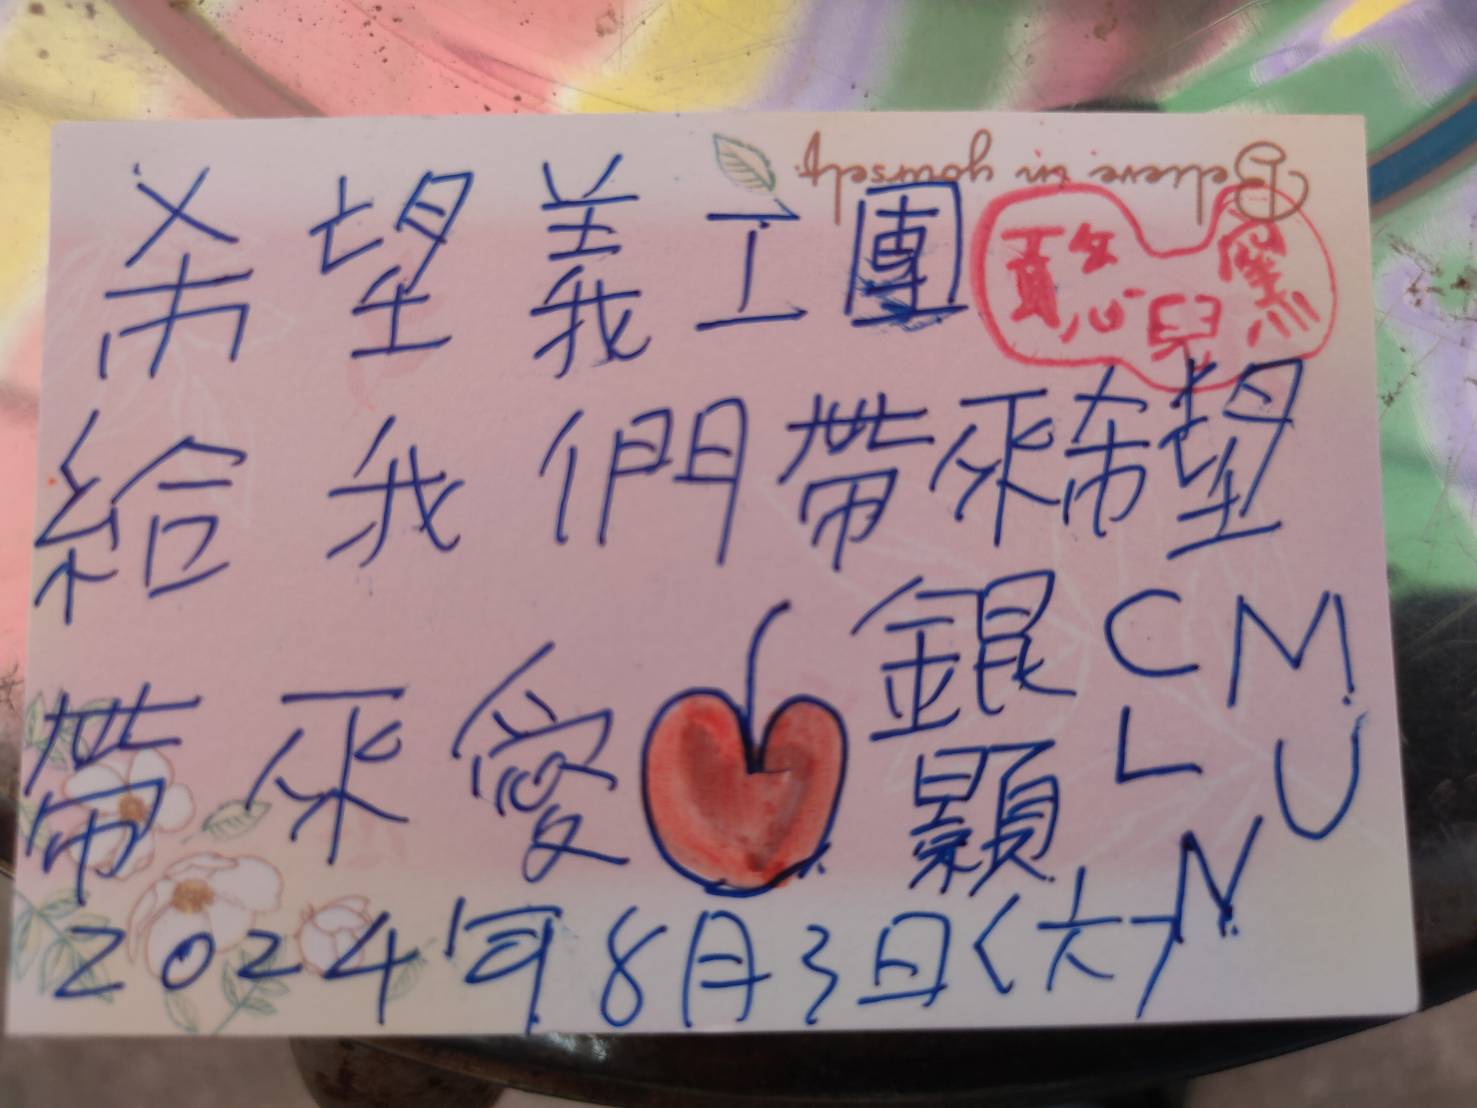 Believe in yourself
希望義工團
聽兒窯
給我們帶來希望
帶來愛
錕
顯
CM
LU
N
2024年8月3日(六)